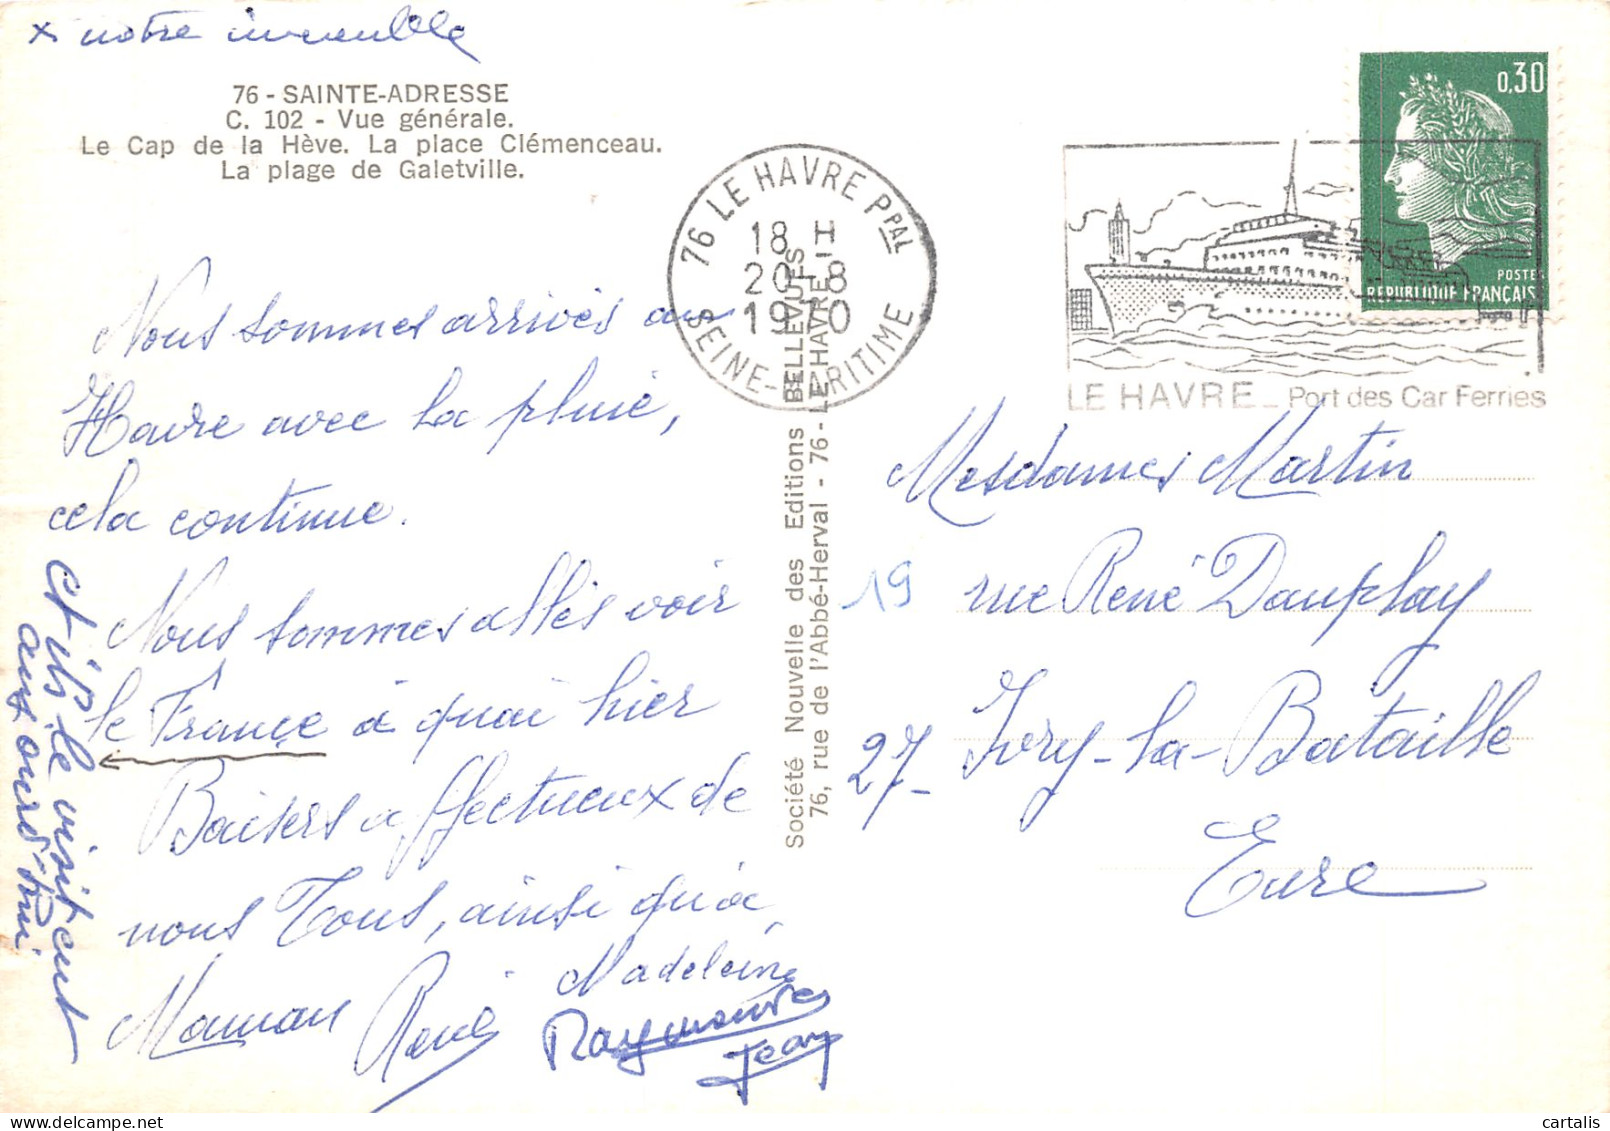 x notre immeuble
76 - SAINTE-ADRESSE
C. 102 - Vue générale.
Le Cap de la Hève. La place Clémenceau.
La plage de Galetville.
Nous sommes arrivés au
Havre avec la pluie,
cela continue.
Nous sommes allés voir
le France à quai hier
Baisers affectueux de
nous Tous, ainsi qu'à
Maman René Madeleine
Raymonde
Jean
et ils le visitent
aujourd'hui
Société Nouvelle des Editions BELLEVUES
76, rue de l'Abbé-Herval - 76 - LE HAVRE
76 LE HAVRE PPAL
18 H
20-8
1970
SEINE-MARITIME
0,30
POSTES
REPUBLIQUE FRANÇAISE
LE HAVRE _ Port des Car Ferries
Mesdames Martin
19 rue René Dauplay
27- Ivry-la-Bataille
Eure
cartalis